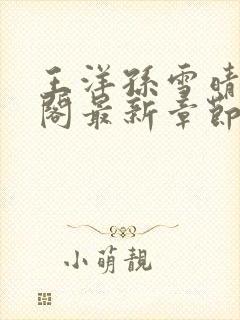 王洋孫雪晴
閣最新章節
小萌靚